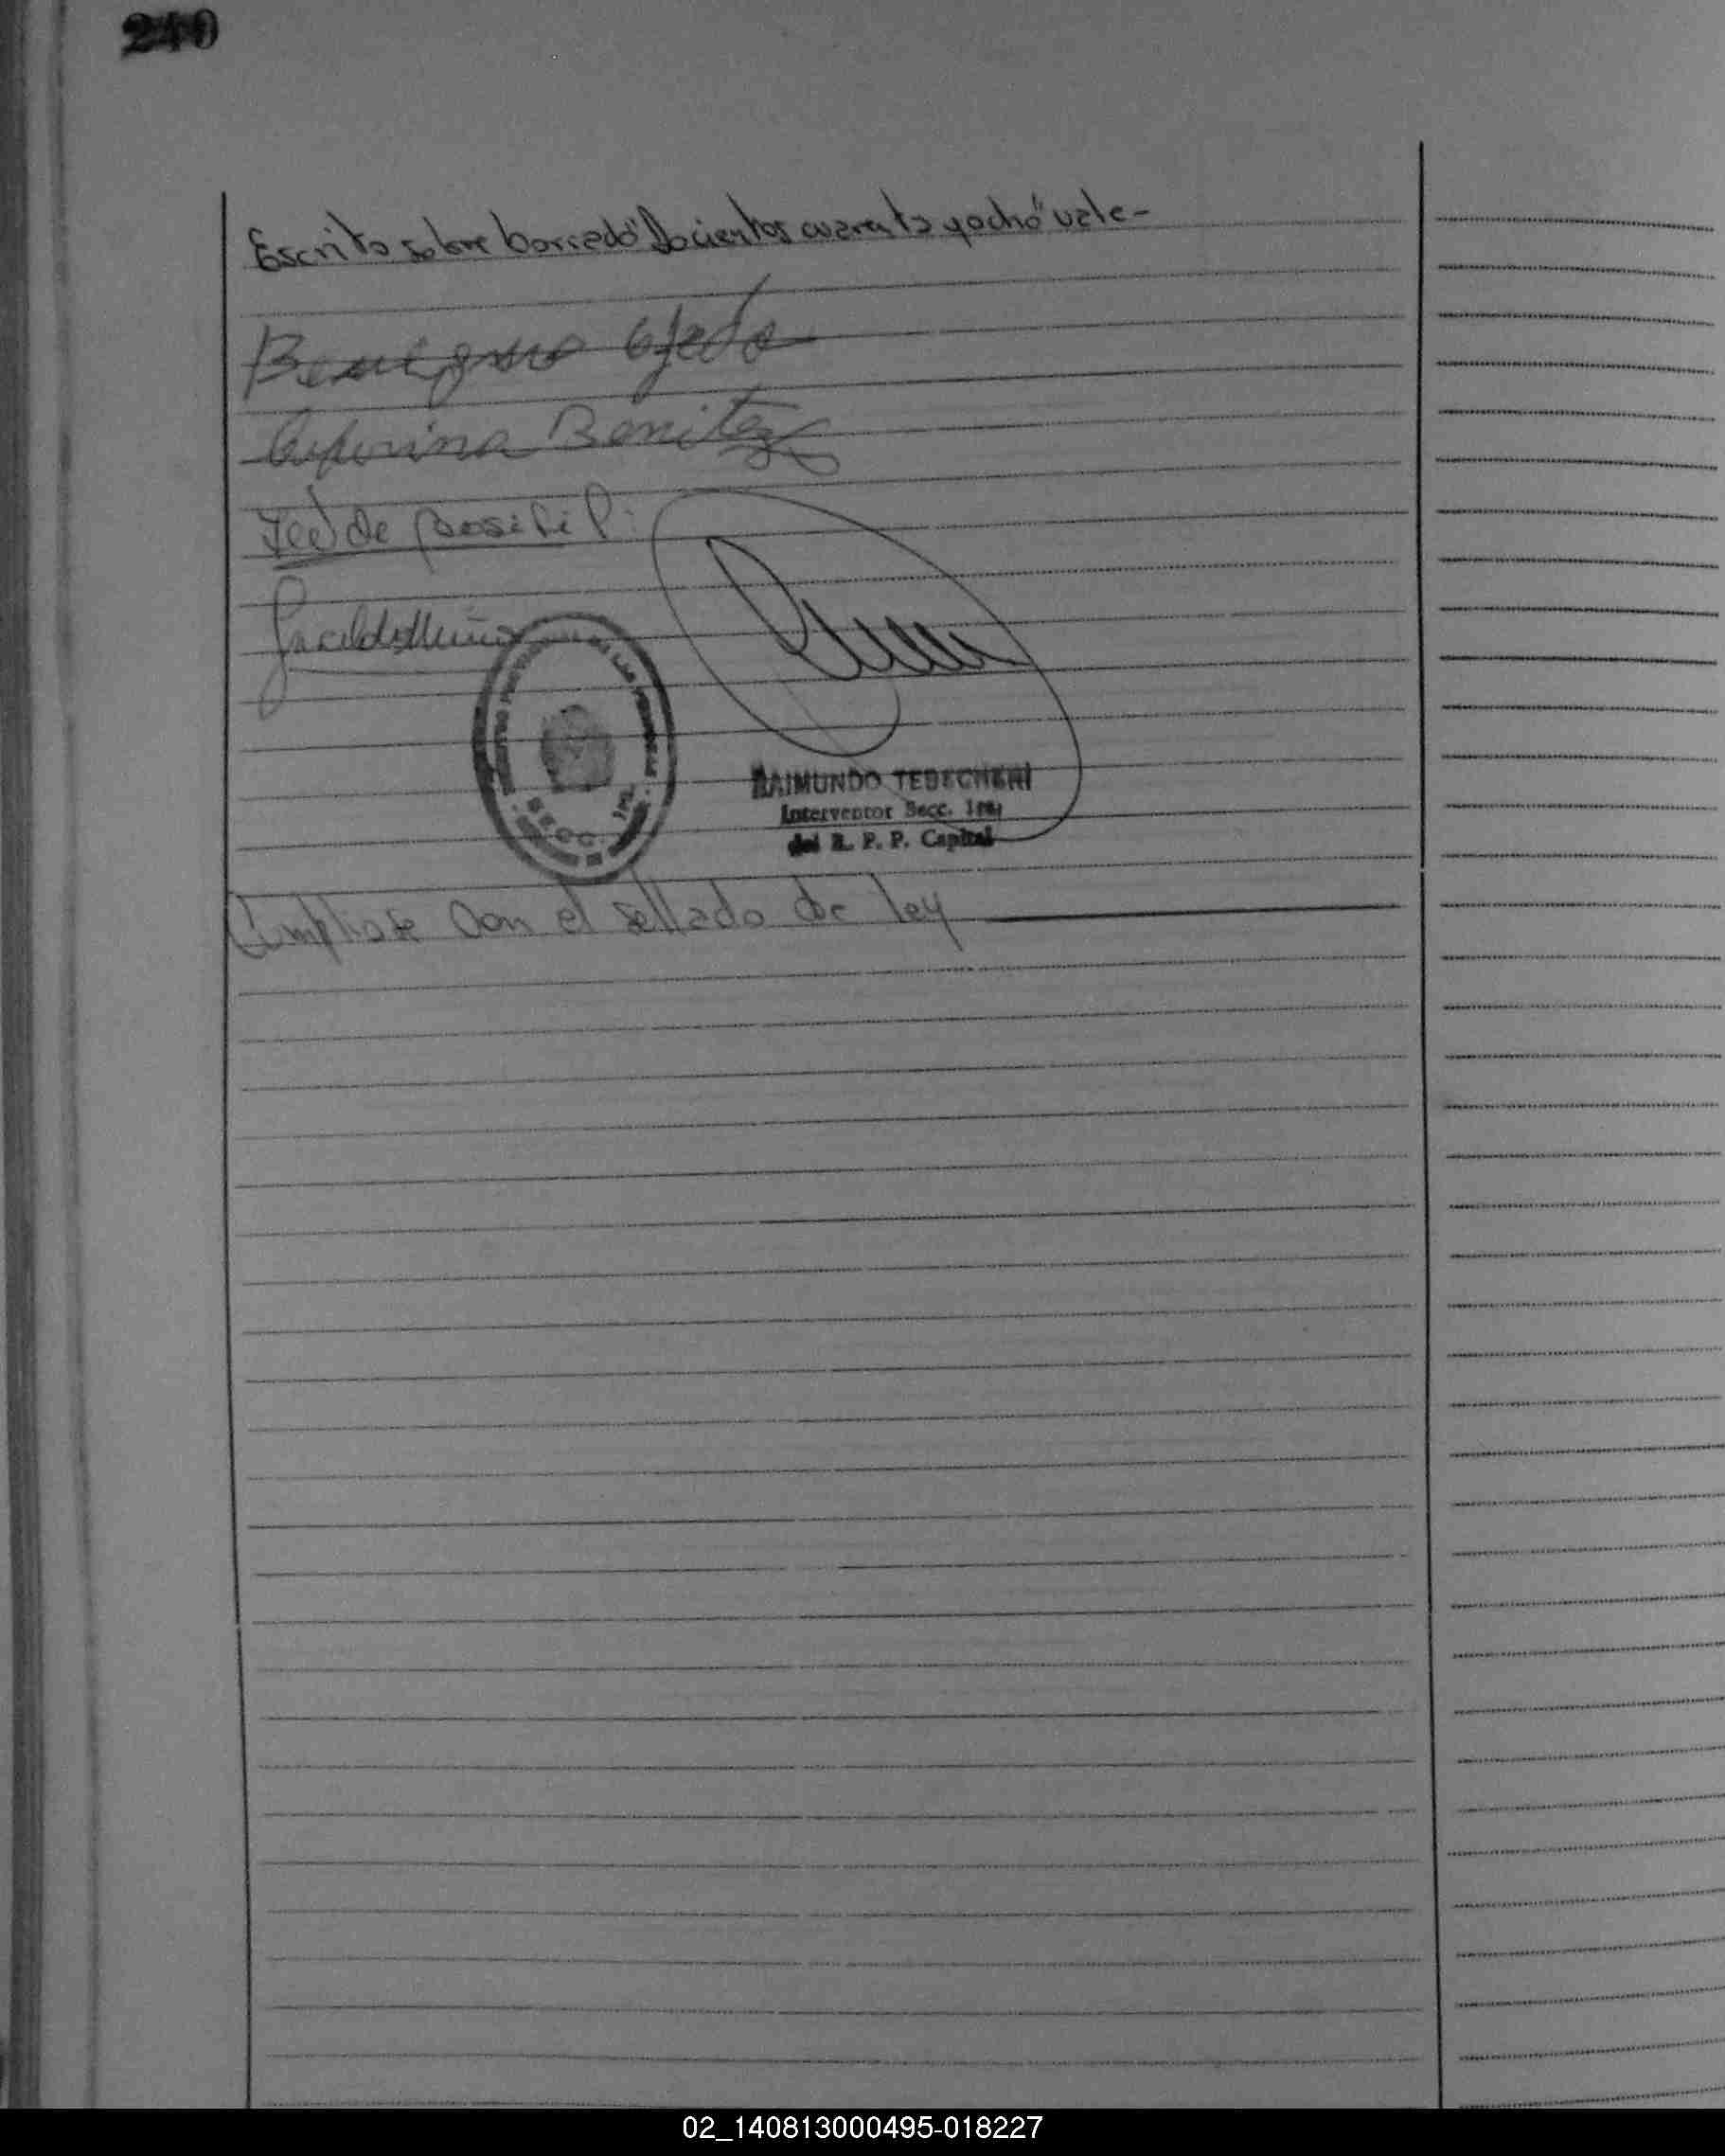 240
Escrito sobre borrado "Docientos cuarenta y ocho" vale-
Benigno Ojeda
Ceferina Benitez
RAIMUNDO TEDECHERI
Interventor Secc. 1ra,
del R. P. P. Capital
SECC. 1ra.
Cumpliose con el sellado de ley
02_140813000495-018227